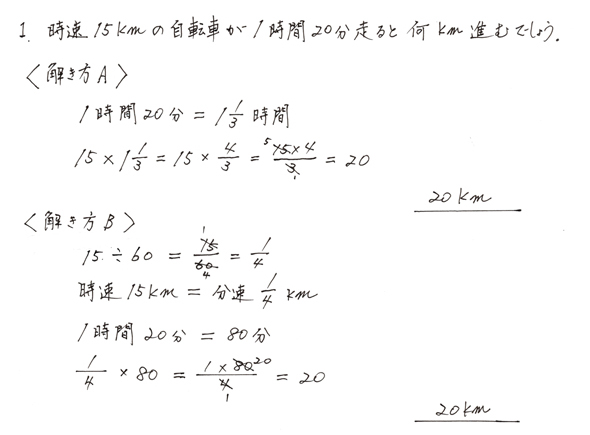 1. 時速15kmの自転車が1時間20分走ると何km進むでしょう.
〈解き方A〉
1時間20分 = 1 1/3 時間
15 × 1 1/3 = 15 × 4/3 = 15 × 4/3 = 20
5 1
20km
〈解き方B〉
15 ÷ 60 = 15/60 = 1/4
1 4
時速15km = 分速 1/4 km
1時間20分 = 80分
1/4 × 80 = 1 × 80/4 = 20
20 1
20km